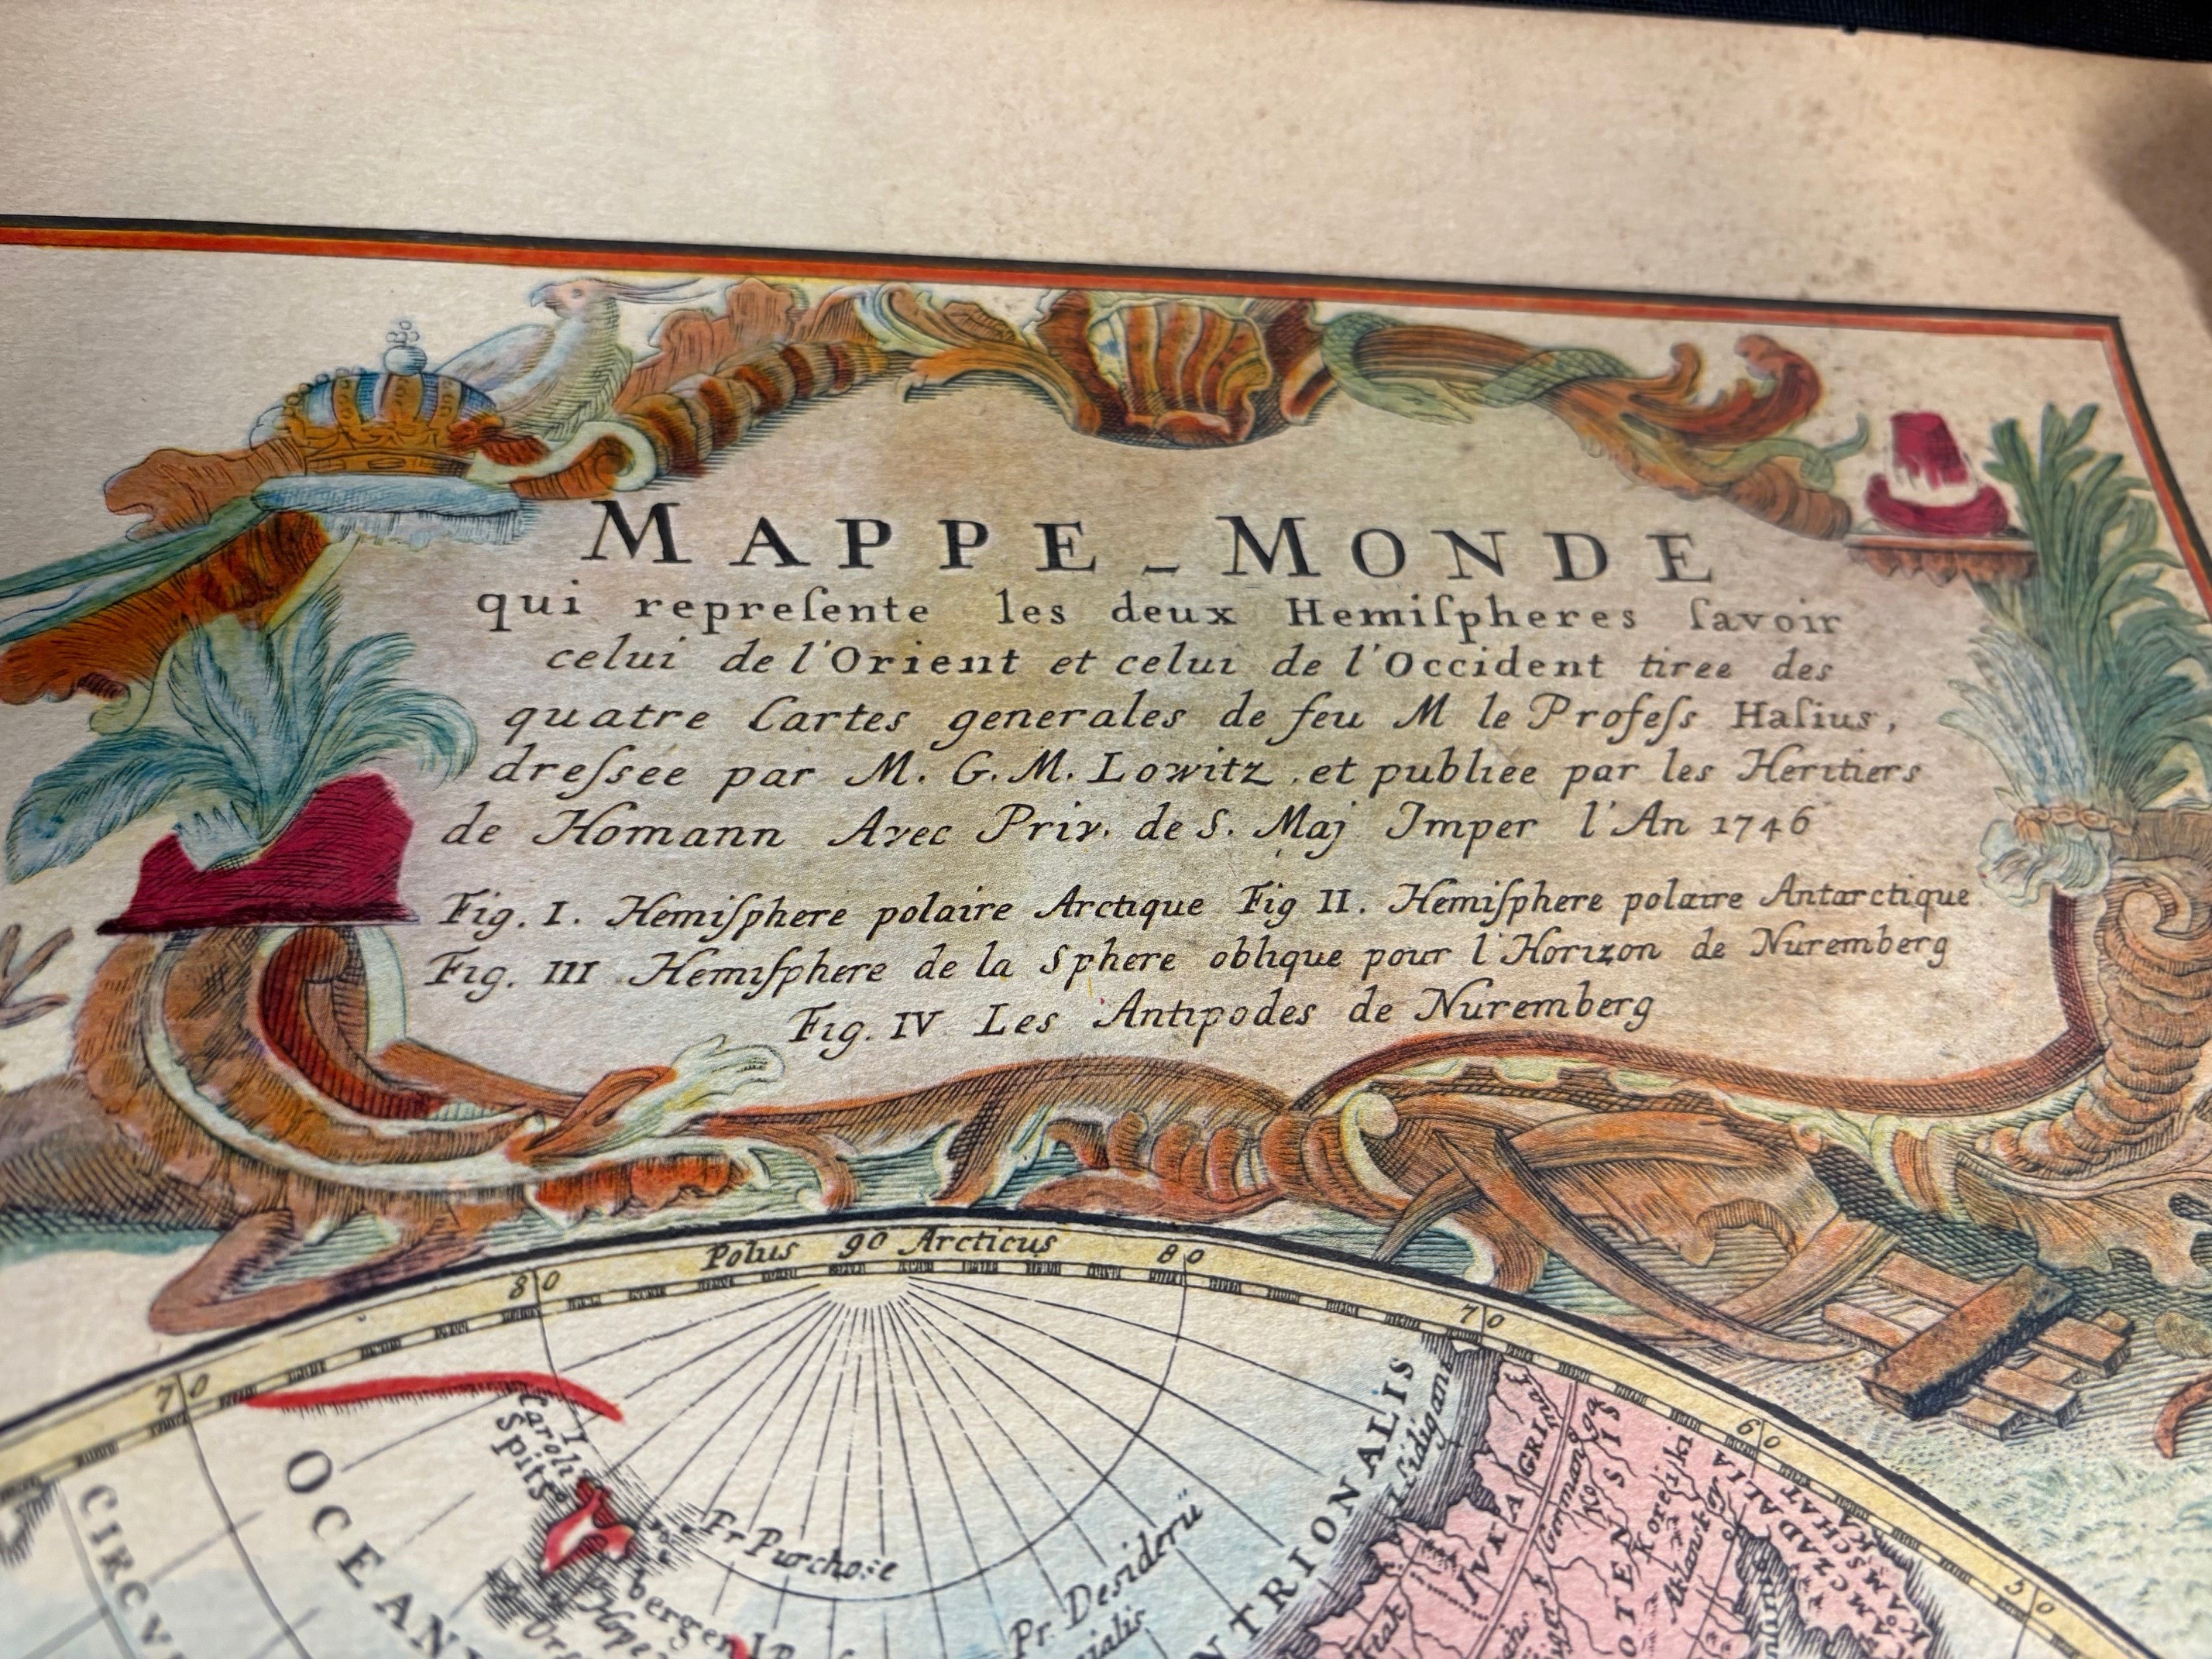 MAPPE_MONDE
qui repreſente les deux Hemiſpheres ſavoir
celui de l'Orient et celui de l'Occident tiree des
quatre Cartes generales de feu M le Profeſs Haſius,
dreſsee par M. G. M. Lowitz, et publiee par les Heritiers
de Homann Avec Priv. de S. Maj Imper l'An 1746
Fig. I. Hemiſphere polaire Arctique Fig II. Hemiſphere polaire Antarctique
Fig. III Hemiſphere de la Sphere oblique pour l'Horizon de Nuremberg
Fig. IV Les Antipodes de Nuremberg
Polus 90 Arcticus
80
80
70
70
60
50
I Caroli
Spits
bergen
Fr Purchose
Pr. Desiderii
OCEAN
TRIONALIS
CIRCV
Koreiki
KAMSCHAT
KAMCZADALIA